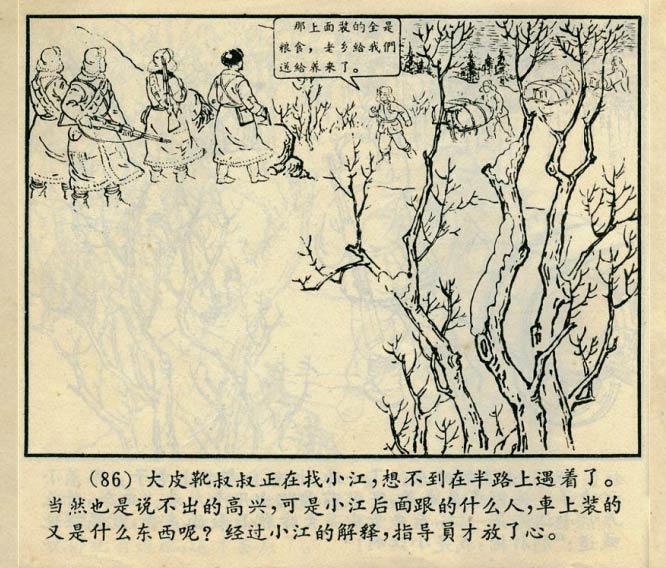 那上面装的全是
粮食，老乡給我們
送給养来了。
(86) 大皮靴叔叔正在找小江，想不到在半路上遇着了。
当然也是说不出的高兴，可是小江后面跟的什么人，車上装的
又是什么东西呢？经过小江的解释，指导員才放了心。